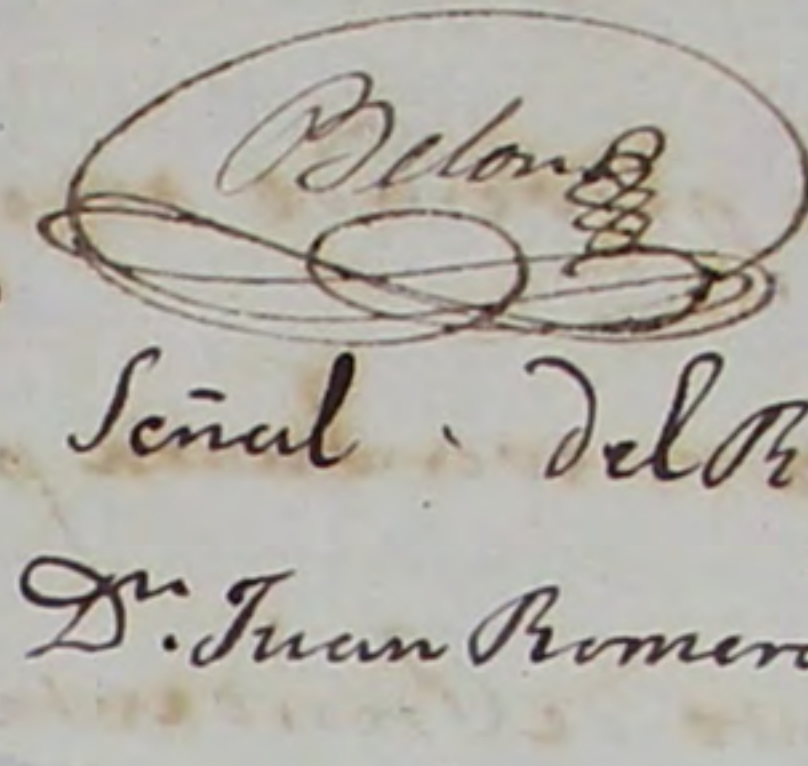 Belon
Señal del R
Dn. Juan Romero